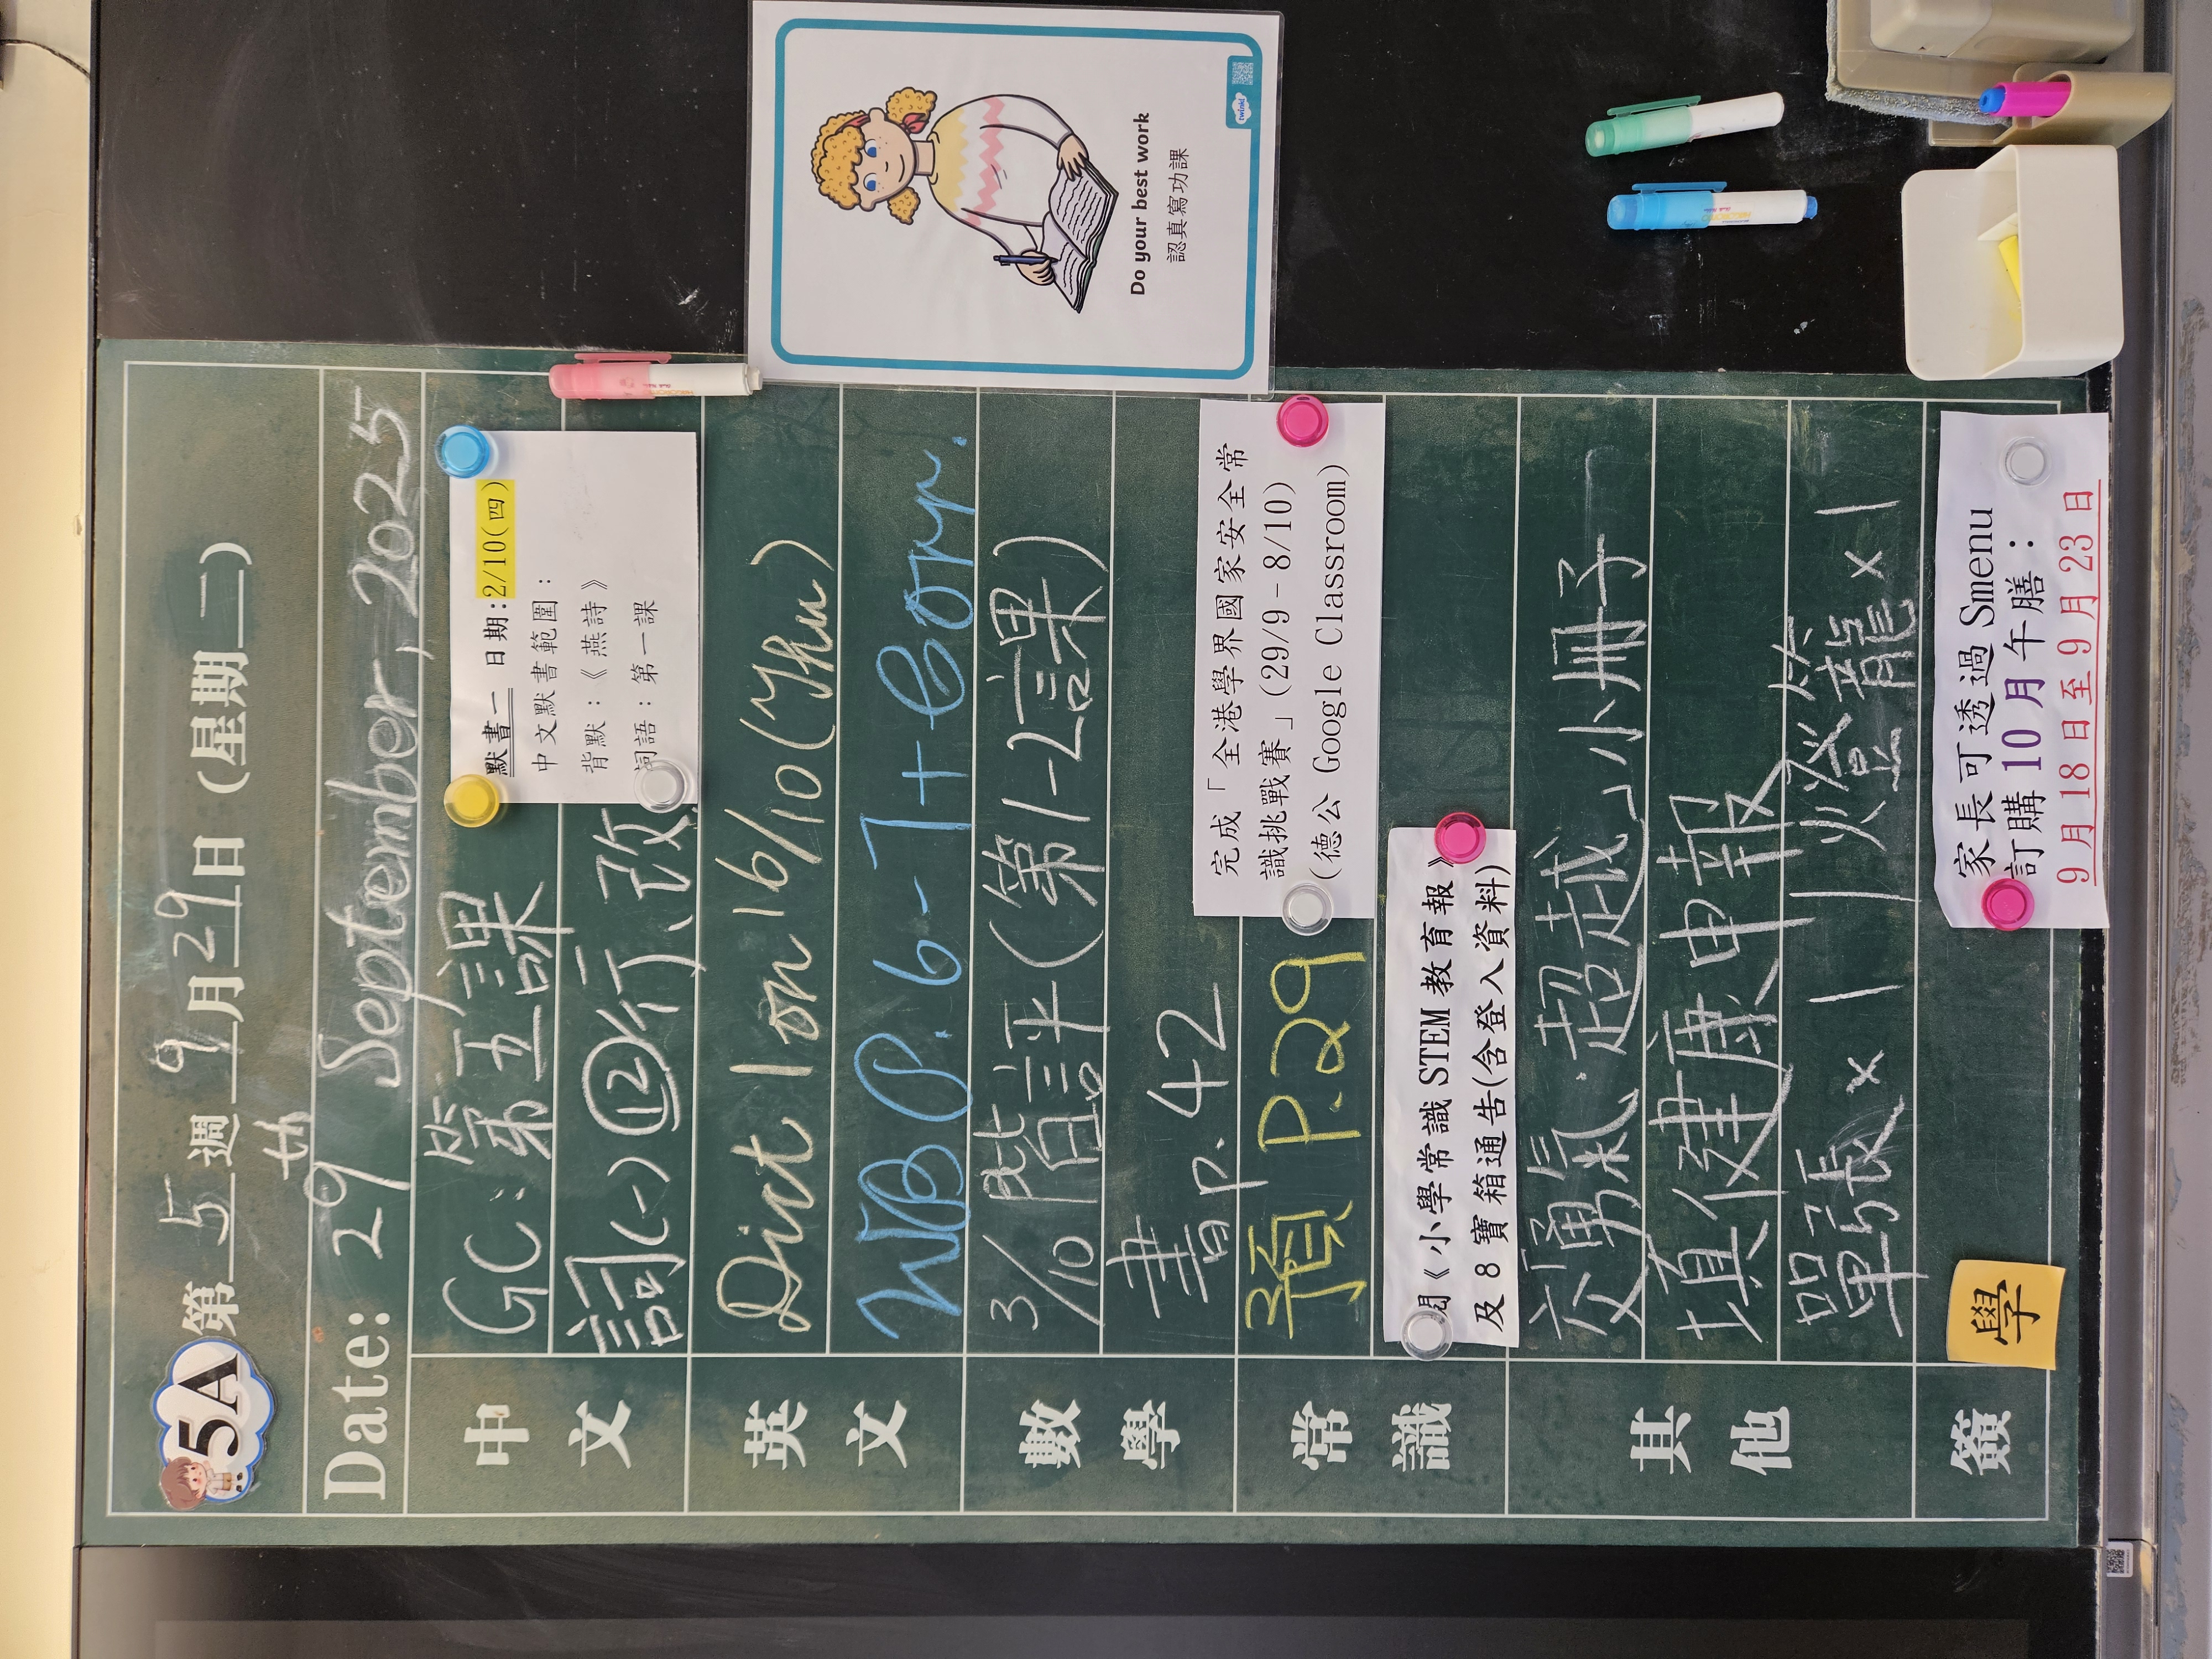 5A 第 5 週 9 月 29 日 (星期 二)
Date: 29th September, 2025
中文
GC: 第五課
詞(一) ⑫行、改
默書一 日期:2/10(四)
中文默書範圍:
背默:《燕詩》
詞語:第一課
英文
Dict 1 on 16/10 (Thu)
WB P.6-7 + Corr.
數學
3/10 階評 (第1-2課)
書 P.42
常識
預 P.29
完成「全港學界國家安全常
識挑戰賽」(29/9–8/10)
(德公 Google Classroom)
閱《小學常識 STEM 教育報》
及 8 寶箱通告(含登入資料)
其他
交「勇氣·超越」小冊子
填健康申報
單張 x 1 | 火燈籠 x 1
簽
學
家長可透過 Smenu
訂購 10 月午膳:
9 月 18 日至 9 月 23 日
Do your best work
認真寫功課
twinkl